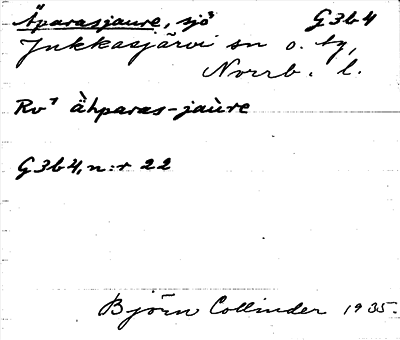 Äparasjaure, sjö G3b4
Jukkasjärvi sn o. tg,
Norrb. l.
Rv⁷ àhparas-jaùre
G3b4, n:r 22
Björn Collinder 1935.